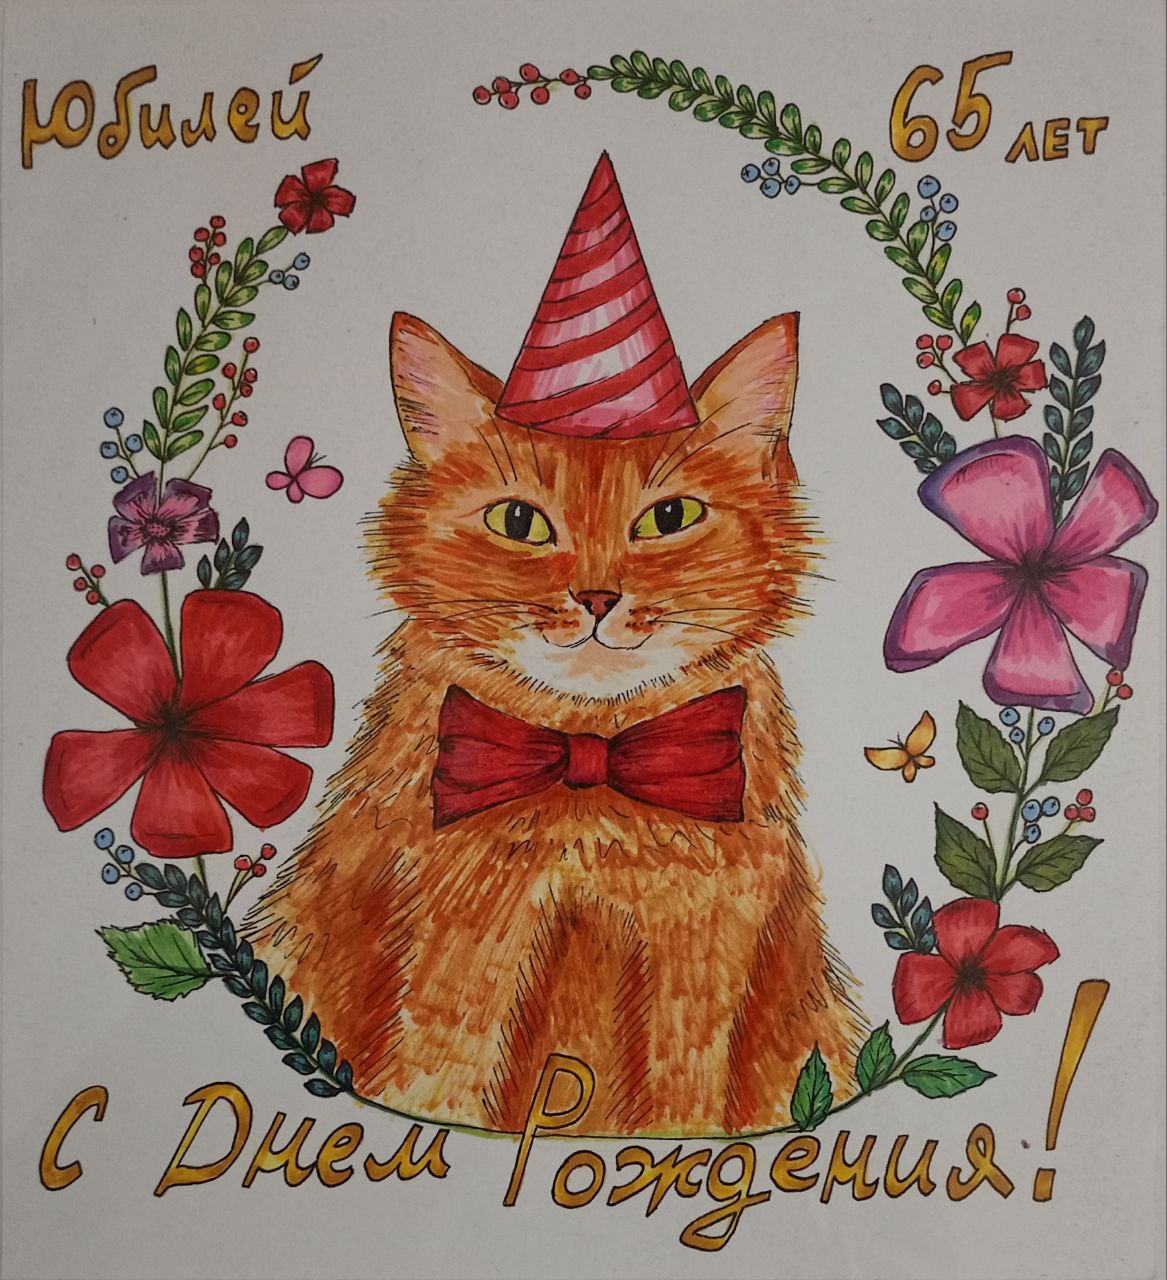 Юбилей
65 лет
С Днем Рождения!